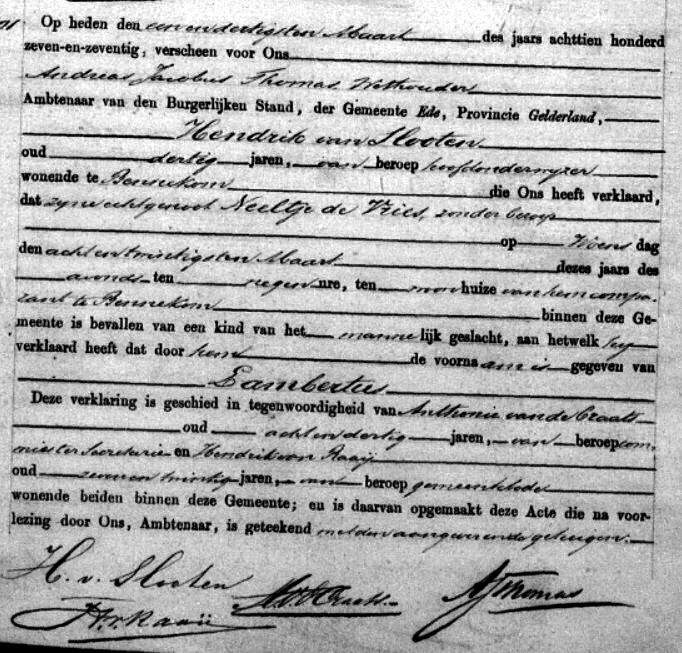 Op heden den een en dertigsten Maart des jaars achttien honderd
zeven-en-zeventig, verscheen voor Ons
Andreas Jacobus Thomas Wethouder
Ambtenaar van den Burgerlijken Stand, der Gemeente Ede, Provincie Gelderland,
Hendrik van Slooten
oud dertig jaren, van beroep hoofdonderwyzer
wonende te Bennekom die Ons heeft verklaard,
dat zyne echtgenoot Neeltje de Vries, zonder beroep
op Woens dag
den acht en twintigsten Maart dezes jaars des
avonds ten negen ure, ten woonhuize van hem compa-
rant te Bennekom binnen deze Ge-
meente is bevallen van een kind van het manne lijk geslacht, aan hetwelk hy
verklaard heeft dat door hem de voorna am is gegeven van
Lambertus
Deze verklaring is geschied in tegenwoordigheid van Anthonie van de Craats
oud acht en dertig jaren, van beroep com-
mies ter Secretarie en Hendrik van Raaij
oud zeven en twintig jaren, van beroep gemeentebode
wonende beiden binnen deze Gemeente; en is daarvan opgemaakt deze Acte die na voor-
lezing door Ons, Ambtenaar, is geteekend met den aangever en de getuigen.
H. v. Slooten
H. v. Raaij vd Craats AJThomas